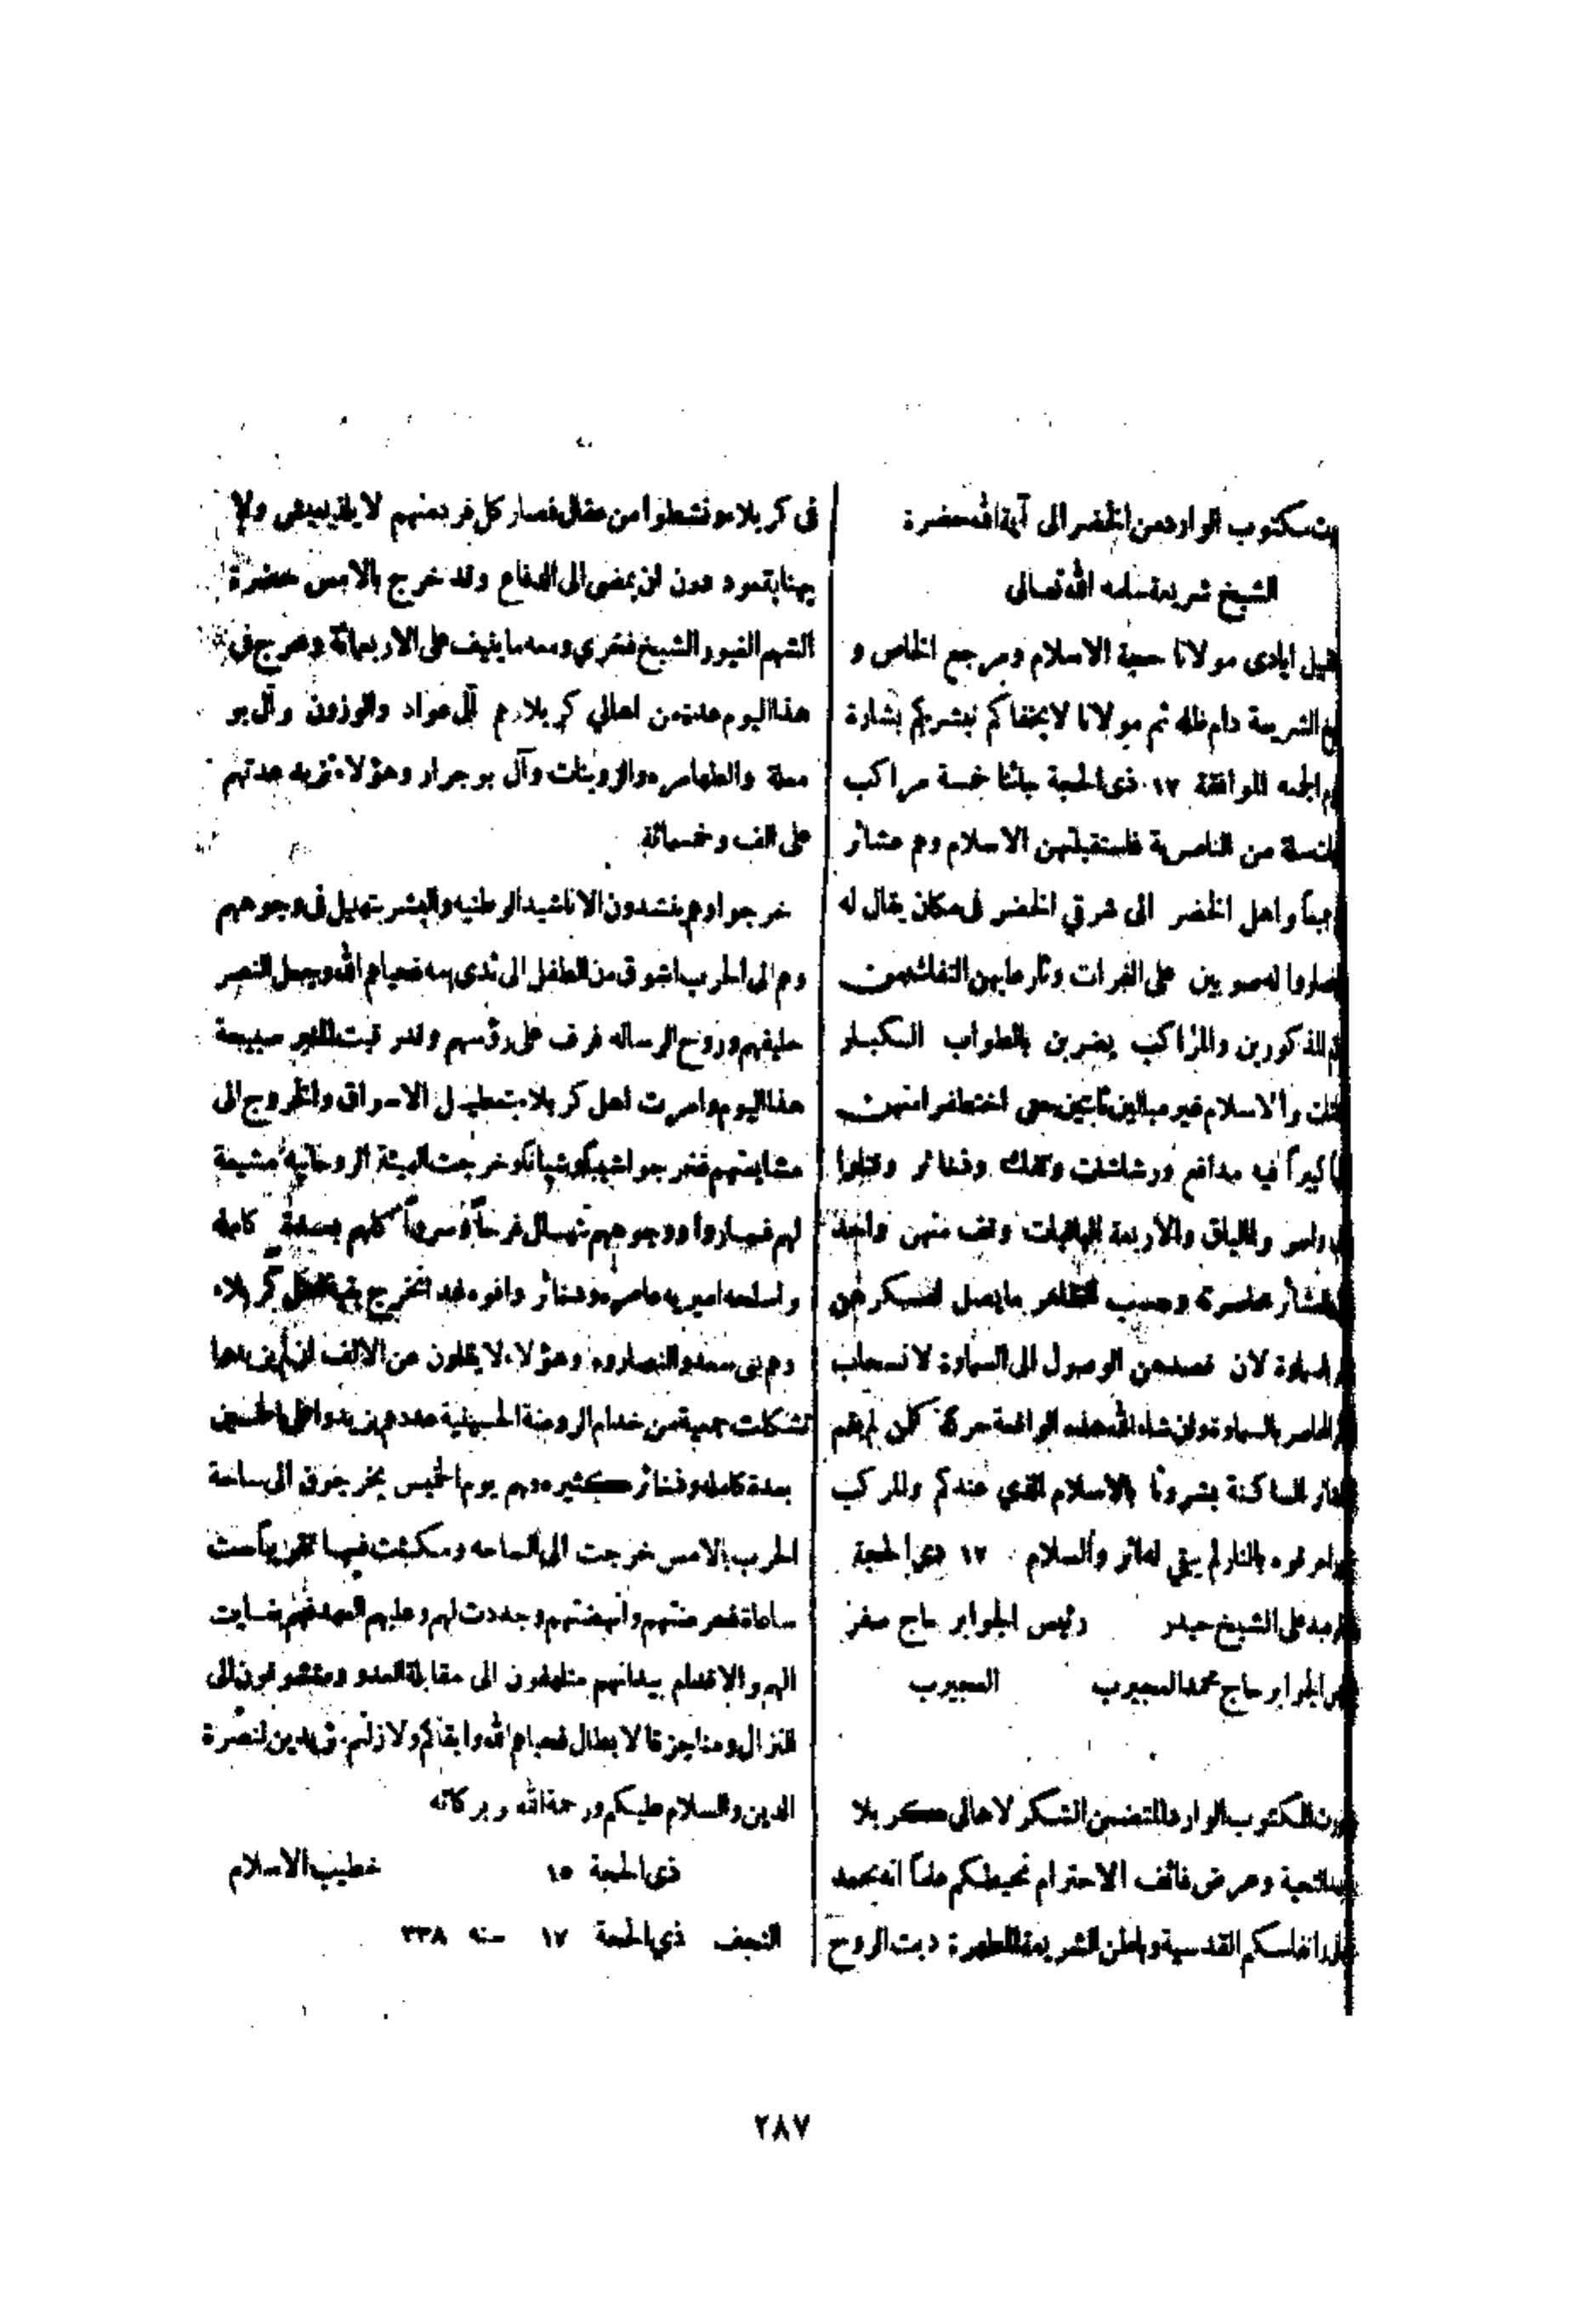 مكتوب الوارد من الخضر الى آية الله حضرة
الشيخ شريعة سلمه الله تعالى
ايادى مولانا حجة الاسلام ومرجع الخاص و
الشريعة دام ظله ثم مولانا لا يخفاكم نبشركم بشارة
الموافقة ١٧ ذى الحجة جائنا خمسة مراكب
من الناصرية فاستقبلتهن الاسلام وهم عشائر
واهل الخضر الى شرقي الخضر فى مكان يقال له
على الفرات وثار عليهن التفاك من
المذكورين والمراكب يضربن بالطواب الكبار
والاسلام غير مبالين ثابتين حتى اغتنموا منهن
فيه مدافع ورشاشات وتفك وفشائر وقتلوا
والباقي والأربعة الباقيات وقف منهن واحد
محاصرة وحسب الظاهر ما يصل لعسكرهن
لان قصدهن الوصول الى السماوة لانسحاب
المحاصر بالسماوة وان شاء الله هذه الواقعة حركة كلن لم يقم
الساكنة بشرونا بالاسلام الذي عندكم والمركب
بالنار لم يبقى له اثر والسلام ١٧ ذي الحجة
عبد على الشيخ حيدر رئيس الجوابر حاج صفر
الجوابر حاج محمد العجيرب العجيرب
المكتوب الوارد المتضمن الشكر لاهالى كربلا
التحية وعرض فائق الاحترام نحيطكم علماً انه بحمد
انفاسكم القدسية وباطن الشريعة المطهرة دبت الروح
فى كربلاء ونشطوا من عقال فصار كل فرد منهم لا يلذ بعيش ولا
يهنا بقمود دون ان يمضى الى الدفاع وقد خرج بالامس حضرة
الشهم الغيور الشيخ فخري ومعه ما ينيف على الاربعمائة وخرج فى
هذا اليوم عدة من اهالي كربلا وهم آل عواد والوزون وآل بو
معلة والطهامزه والزوينات وآل بو جرار وهؤلاء تزيد عدتهم
على الف وخمسمائة
خرجوا وهم ينشدون الاناشيد الوطنيه والبشر يتهلل فى وجوههم
وهم الى الحرب اشوق من الطفل الى ثدى امه فحياهم الله وجعل النصر
حليفهم وروح الرساله ترف على رؤسهم ولقد رقيت المنبر صبيحة
هذا اليوم وامرت اهل كربلاء بتعطيل الاسواق والخروج الى
مشايعتهم فخرجوا شيبا وشبانا وخرجت الهيئة الروحانيه مشيعة
لهم فساروا ووجوههم تهلل فرحاً وسروراً كلهم بعدة كامله
واسلحه اميريه عامره وفشائر وافره غداً تخرج بقية اهل كربلاء
وهم بنى سعد والنصاروه وهؤلاء لا يقلون عن الالف ان لم يزيدها
تشكلت جمعية من خدام الروضة الحسينية عددهم يزيد واهل الحسين
بعدة كامله وفشائر كثيره وهم يوم الخميس يخرجون الى ساحة
الحرب بالامس خرجت الى الساحه ومكثت فيها تقريباً ست
ساعات فحرضتهم وانهضتهم وجددت لهم وعليهم العهد فهم بغايت
الهم والاقدام بيدانهم متلهفون الى مقابلة العدو ومتشوقون الى
النزال ومناجزة الابطال فحياهم الله وابقاكم ولا زلتم مؤيدين لنصرة
الدين والسلام عليكم ورحمة الله وبركاته
ذى الحجة ١٥ خطيب الاسلام
النجف ذي الحجة ١٧ سنه ٣٣٨
٢٨٧